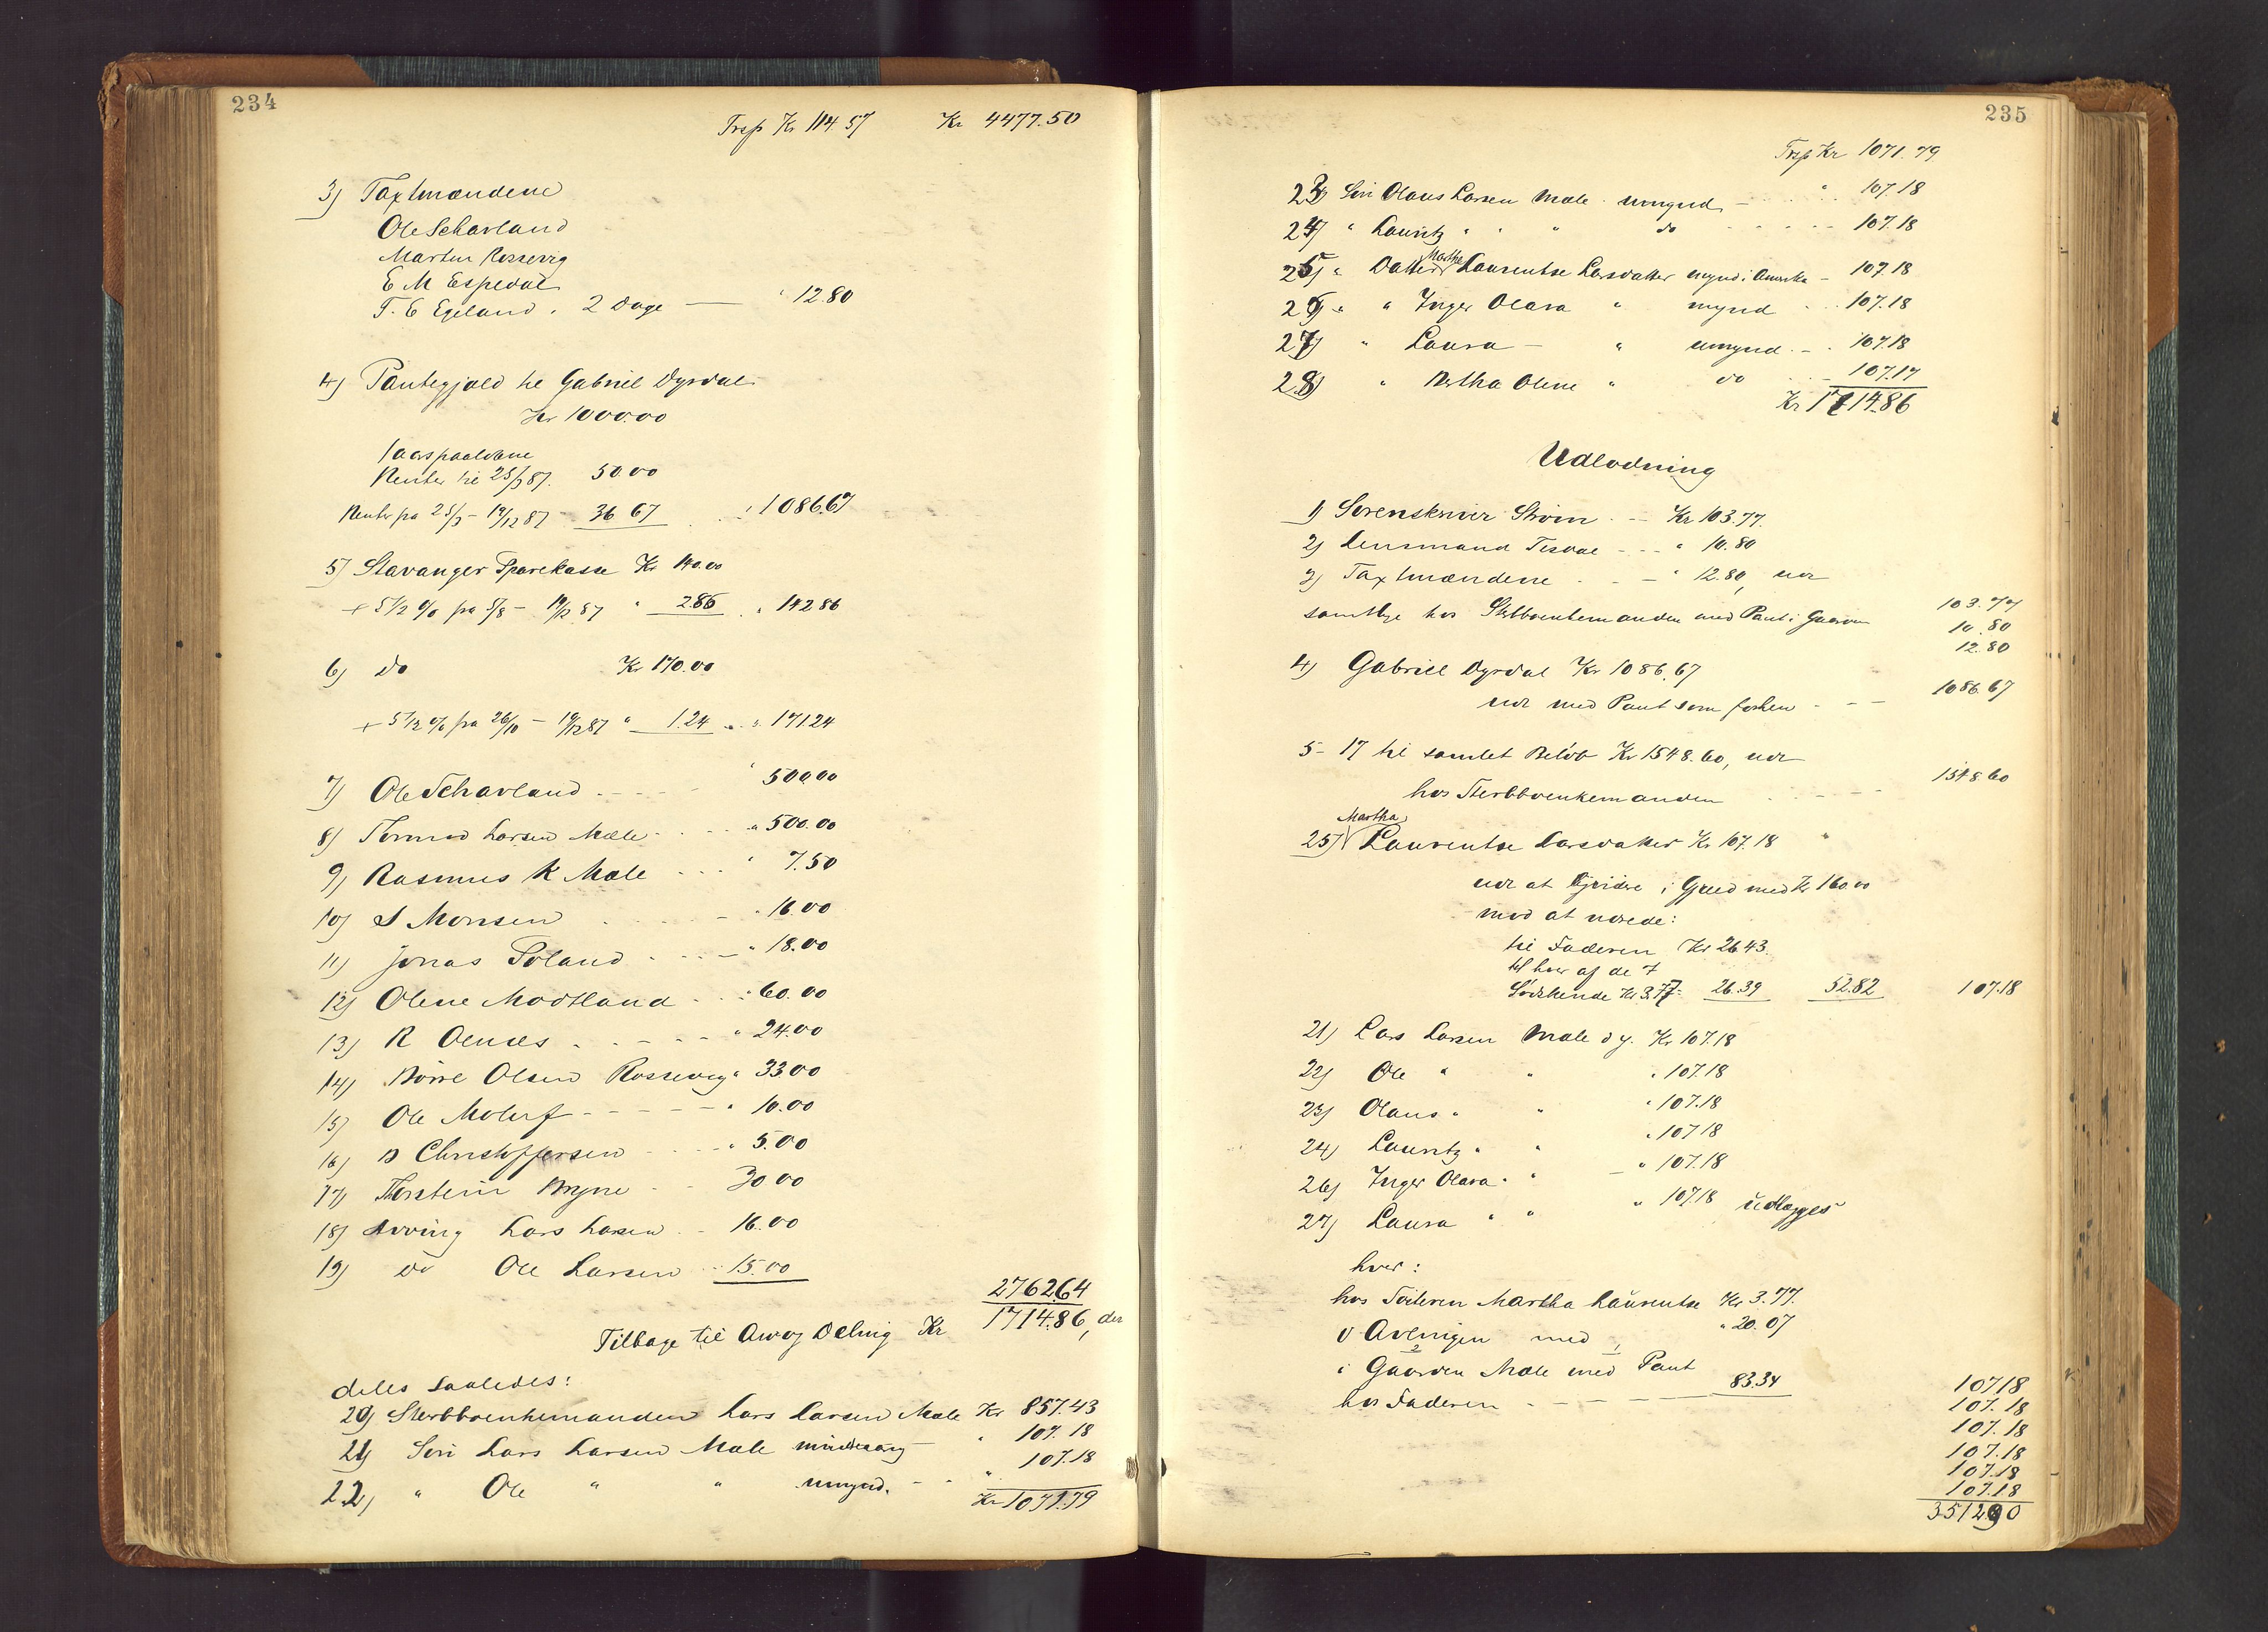 234
Trsp Kr 114.57 Kr 4477.50
3) Taxtmændene
Ole Scharland
Martin Rossevig
E M Espedal
T. E Egeland, 2 Dage — " 12.80
4) Pantegjæld til Gabriel Dyrdal
Kr 1000.00
1 aars paaløbne
Renter til 25/3 87. 50.00
Renter fra 25/3 - 19/12 87 - 36 67 " 1086.67
5) Stavanger Sparekasse Kr 140.00
+ 5 1/2 % fra 5/8 - 19/12 87 " 2.86 " 142 86
6) do Kr 170.00
+ 5 1/2 % fra 26/10 - 19/12 87 " 1.24 " 171 24
7) Ole Scharland - - - " 500.00
8) Tormod Larsen Mæle - - - " 500.00
9) Rasmus K Mæle - - - " 7.50
10) S Monsen - - " 16.00
11) Jonas Foland - - - " 18.00
12) Olene Modtland - - " 60.00
13) R Olenæs - - - - " 24.00
14) Børre Olsen Rossevig " 33 00
15) Ole Moluf - - - - - " 10.00
16) D Christoffersen - - - " 5.00
17) Thorstein Bryne - - 30 00
18) Arving Lars Larsen - 16.00
19) do Ole Larsen - 15.00
2762.64
Tilbage til Arv og Deling Kr 1714.86, der
deles saaledes:
20) Sterbboenkemanden Lars Larsen Mæle Kr 857.43
21) Søn Lars Larsen Mæle mindreaarig " 107.18
22) " Ole " " umynd. - " 107.18
Kr 1071.79
235
Trsp Kr 1071.79
23) Søn Olaus Larsen Mæle umynd. - " 107.18
24) " Lauritz " " " do - - - - 107.18
25) " Datter Martha Laurentse Larsdatter mynd i Amerika - 107.18
26) " " Inger Olava " mynd - - 107.18
27) " Laura - " umynd. - - 107.18
28) " Bertha Olene " do - 107.17
Kr 1714.86
Udlodning
1) Sorenskriver Strøm - - Kr 103.77.
2) Lensmand Tisdal - - - " 10.80
3) Taxtmændene - - - " 12.80, udl
samtlige hos Sterbboenkemanden med Pant i Gaarden 103.77
10.80
12.80
4) Gabriel Dyrdal Kr 1086.67
udl med Pant som forhen - - - 1086.67
5 - 17 til samlet Beløb Kr 1548.60, udl
hos Sterbboenkemanden - - - - 1548.60
25) Martha Laurentse Larsdatter Kr 107.18 "
udl at Kjridse i Gjæld med Kr 160.00
mod at udrede:
til Faderen Kr 26.43.
til hver af de 7
Sødskende Kr 3.77 - 26.39 52.82 107.18
21) Lars Larsen Mæle d y. Kr 107.18
22) Ole " " " 107.18
23) Olaus " " " 107.18
24) Lauritz " " " 107 18
26) Inger Olava " " - " 107.18
27) Laura " " " 107.18 udlægges
hver:
hos Søsteren Martha Laurentse Kr 3.77.
i Avlingen med " 20.07
i Gaarden Mæle med 2 1 Pant
hos Faderen - - - - 83.34
107 18
107.18
107.18
107.18
107.18
107.18
3512.90